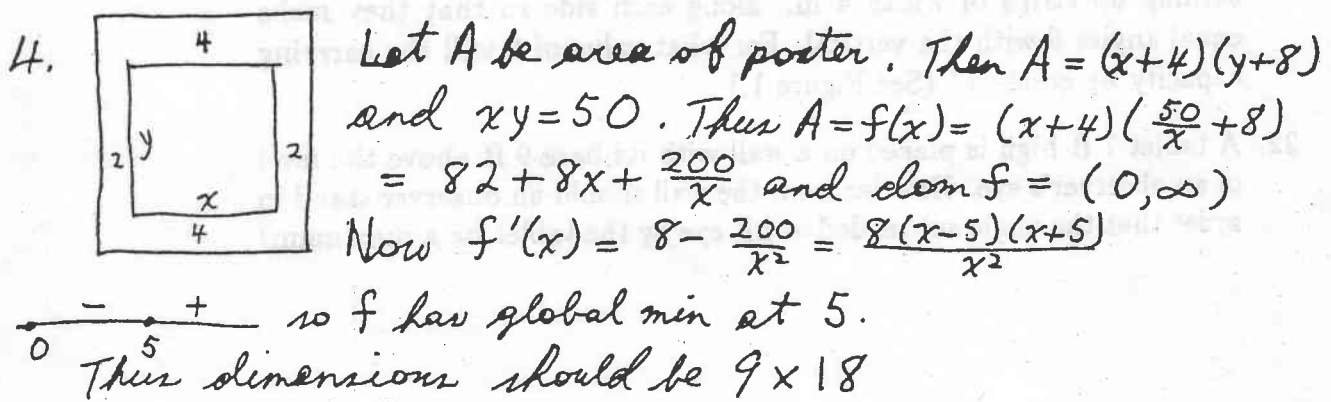 4.
4
Let A be area of poster. Then A = (x+4)(y+8)
and xy = 50. Thus A = f(x) = (x+4)(50/x + 8)
2 y 2
= 82 + 8x + 200/x and dom f = (0,∞)
x
4
Now f'(x) = 8 - 200/x² = 8(x-5)(x+5)/x²
- + so f has global min at 5.
0 5
Thus dimensions should be 9 x 18